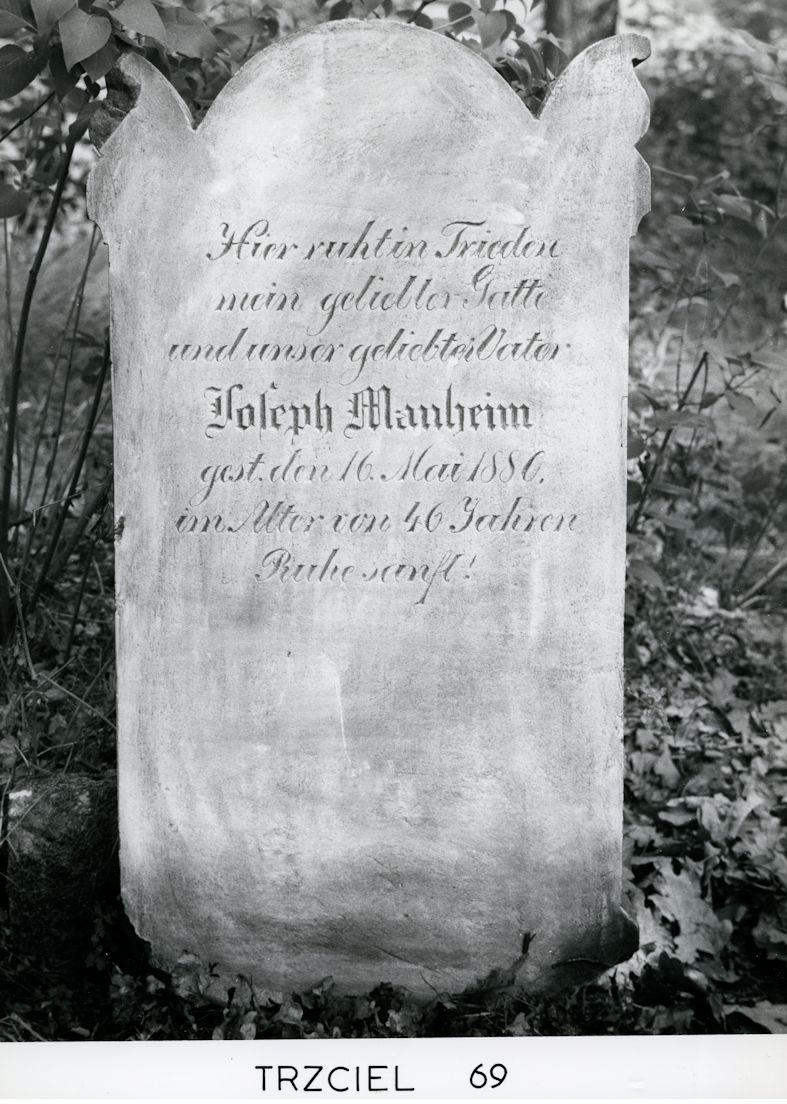 Hier ruht in Frieden
mein geliebter Gatte
und unser geliebter Vater
Joseph Manheim
gest. den 16. Mai 1886,
im Alter von 46 Jahren
Ruhe sanft!
TRZCIEL 69